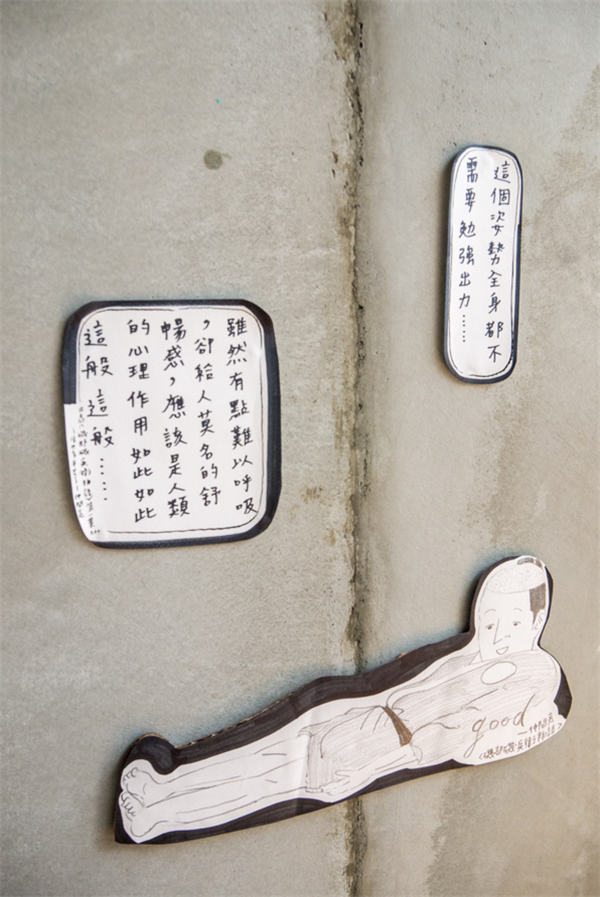 這個姿勢全身都不
需要勉強出力……
雖然有點難以呼吸
，卻給人莫名的舒
暢感，應該是人類
的心理作用如此如此
這般這般……
good